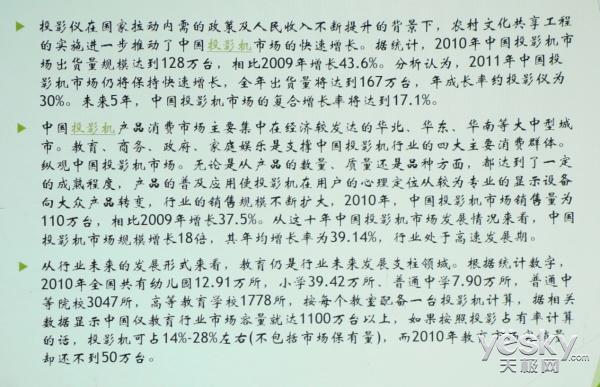 投影仪在国家拉动内需的政策及人民收入不断提升的背景下，农村文化共享工程
的实施进一步推动了中国投影机市场的快速增长。据统计，2010年中国投影机市
场出货量规模达到128万台，相比2009年增长43.6%。分析认为，2011年中国投
影机市场仍将保持快速增长，全年出货量将达到167万台，年成长率约投影仪为
30%。未来5年，中国投影机市场的复合增长率将达到17.1%。
中国投影机产品消费市场主要集中在经济较发达的华北、华东、华南等大中型城
市。教育、商务、政府、家庭娱乐是支撑中国投影机行业的四大主要消费群体。
纵观中国投影机市场。无论是从产品的数量、质量还是品种方面，都达到了一定
的成熟程度，产品的普及应用使投影机在用户的心理定位从较为专业的显示设备
向大众产品转变，行业的销售规模不断扩大，2010年，中国投影机市场销售量为
110万台，相比2009年增长37.5%。从这十年中国投影机市场发展情况来看，中国
投影机市场规模增长18倍，其年均增长率为39.14%，行业处于高速发展期。
从行业未来的发展形式来看，教育仍是行业未来发展支柱领域。根据统计数字，
2010年全国共有幼儿园12.91万所，小学39.42万所、普通中学7.90万所，普通中
等院校3047所，高等教育学校1778所，按每个教室配备一台投影机计算，据相关
数据显示中国仅教育行业市场容量就达1100万台以上，如果按照投影占有率计算
的话，投影机可占14%-28%左右(不包括市场保有量)，而2010年教育市
却还不到50万台。
yesky
天极网